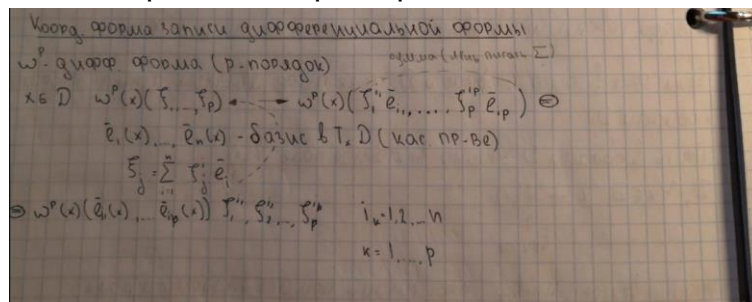 Коорд. форма записи дифференциальной формы
w^p - дифф. форма (p-порядок) сумма (лень писать Σ)
x ∈ D w^p(x)(ξ₁, ..., ξ_p) w^p(x)(ξ₁^{i₁} ē_{i₁}, ..., ξ_p^{i_p} ē_{i_p}) =
ē₁(x), ..., ē_n(x) - базис в T_xD (кас. пр-ве)
ξ̄_j = Σ_{i=1}^{n} ξ_j^i ē_i
= w^p(x)(ē_{i₁}(x), ... ē_{i_p}(x)) ξ₁^{i₁}, ξ₂^{i₂}, ..., ξ_p^{i_p} i_k = 1, 2, ... n
k = 1, ..., p